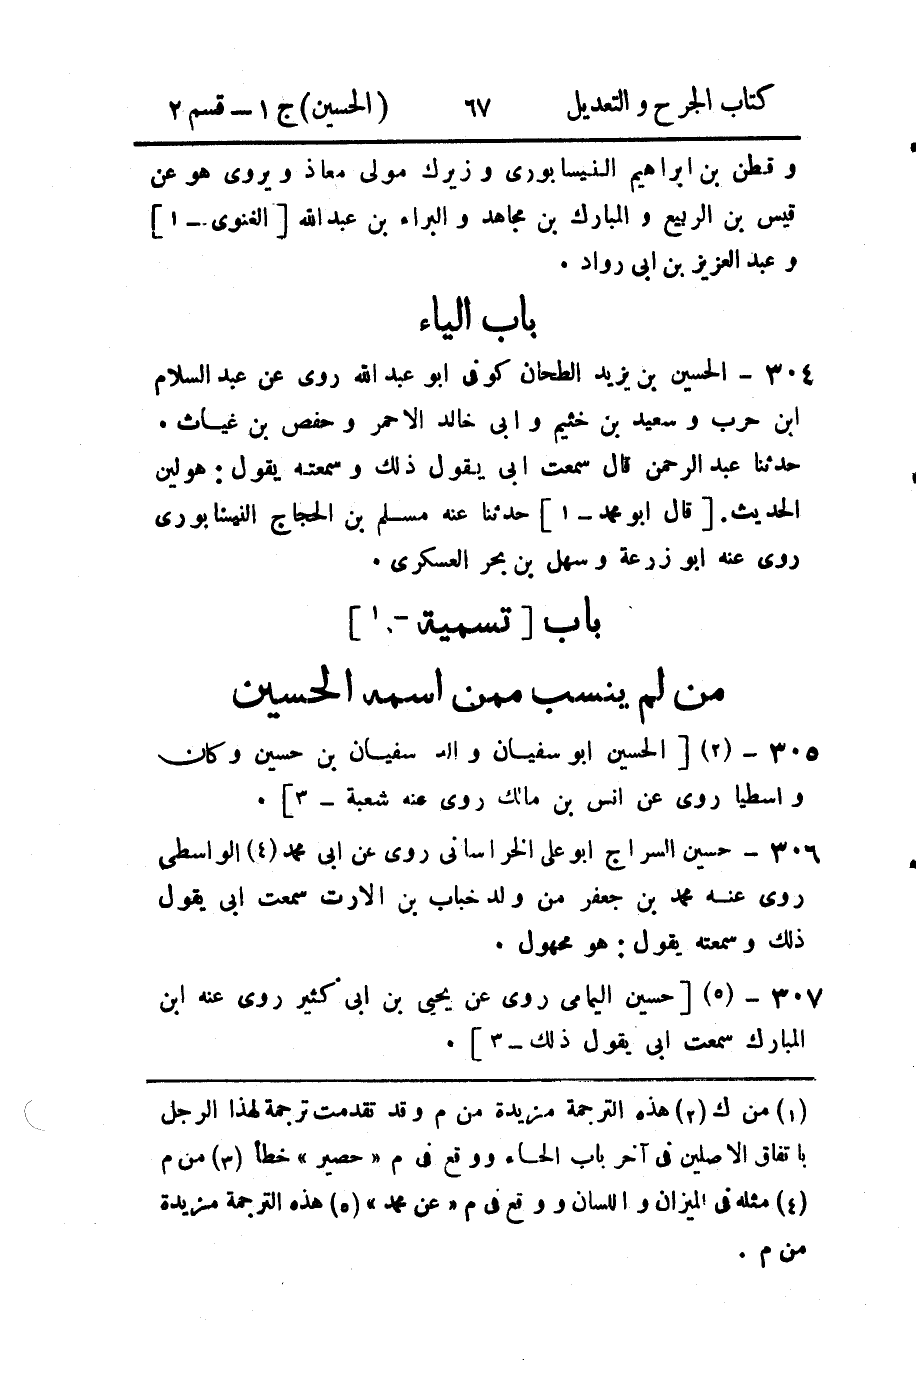 كتاب الجرح والتعديل ٦٧ (الحسين) ج ١ – قسم ٢
وقطن بن ابراهيم النيسابورى وزيرك مولى معاذ ويروى هو عن
قيس بن الربيع والمبارك بن مجاهد والبراء بن عبد الله [الغنوى – ١]
وعبد العزيز بن ابى رواد .
باب الياء
٣٠٤ – الحسين بن يزيد الطحان كوفى ابو عبد الله روى عن عبد السلام
ابن حرب وسعيد بن خثيم وابى خالد الاحمر وحفص بن غياث .
حدثنا عبد الرحمن قال سمعت ابى يقول ذلك وسمعته يقول : هو لين
الحديث . [قال ابو محمد – ١] حدثنا عنه مسلم بن الحجاج النيسابورى
روى عنه ابو زرعة وسهل بن بحر العسكرى .
باب [تسمية – ١]
من لم ينسب ممن اسمه الحسين
٣٠٥ – (٢) [الحسين ابو سفيان والد سفيان بن حسين وكان
واسطيا روى عن انس بن مالك روى عنه شعبة – ٣] .
٣٠٦ – حسين السراج ابو على الخراسانى روى عن ابى محمد (٤) الواسطى
روى عنه محمد بن جعفر من ولد خباب بن الارت سمعت ابى يقول
ذلك وسمعته يقول : هو مجهول .
٣٠٧ – (٥) [حسين اليمامى روى عن يحيى بن ابى كثير روى عنه ابن
المبارك سمعت ابى يقول ذلك – ٣] .
(١) من ك (٢) هذه الترجمة مزيدة من م وقد تقدمت ترجمة لهذا الرجل
باتفاق الاصلين فى آخر باب الحاء ووقع فى م « حصير » خطأ (٣) من م
(٤) مثله فى الميزان واللسان ووقع فى م « عن محمد » (٥) هذه الترجمة مزيدة
من م .